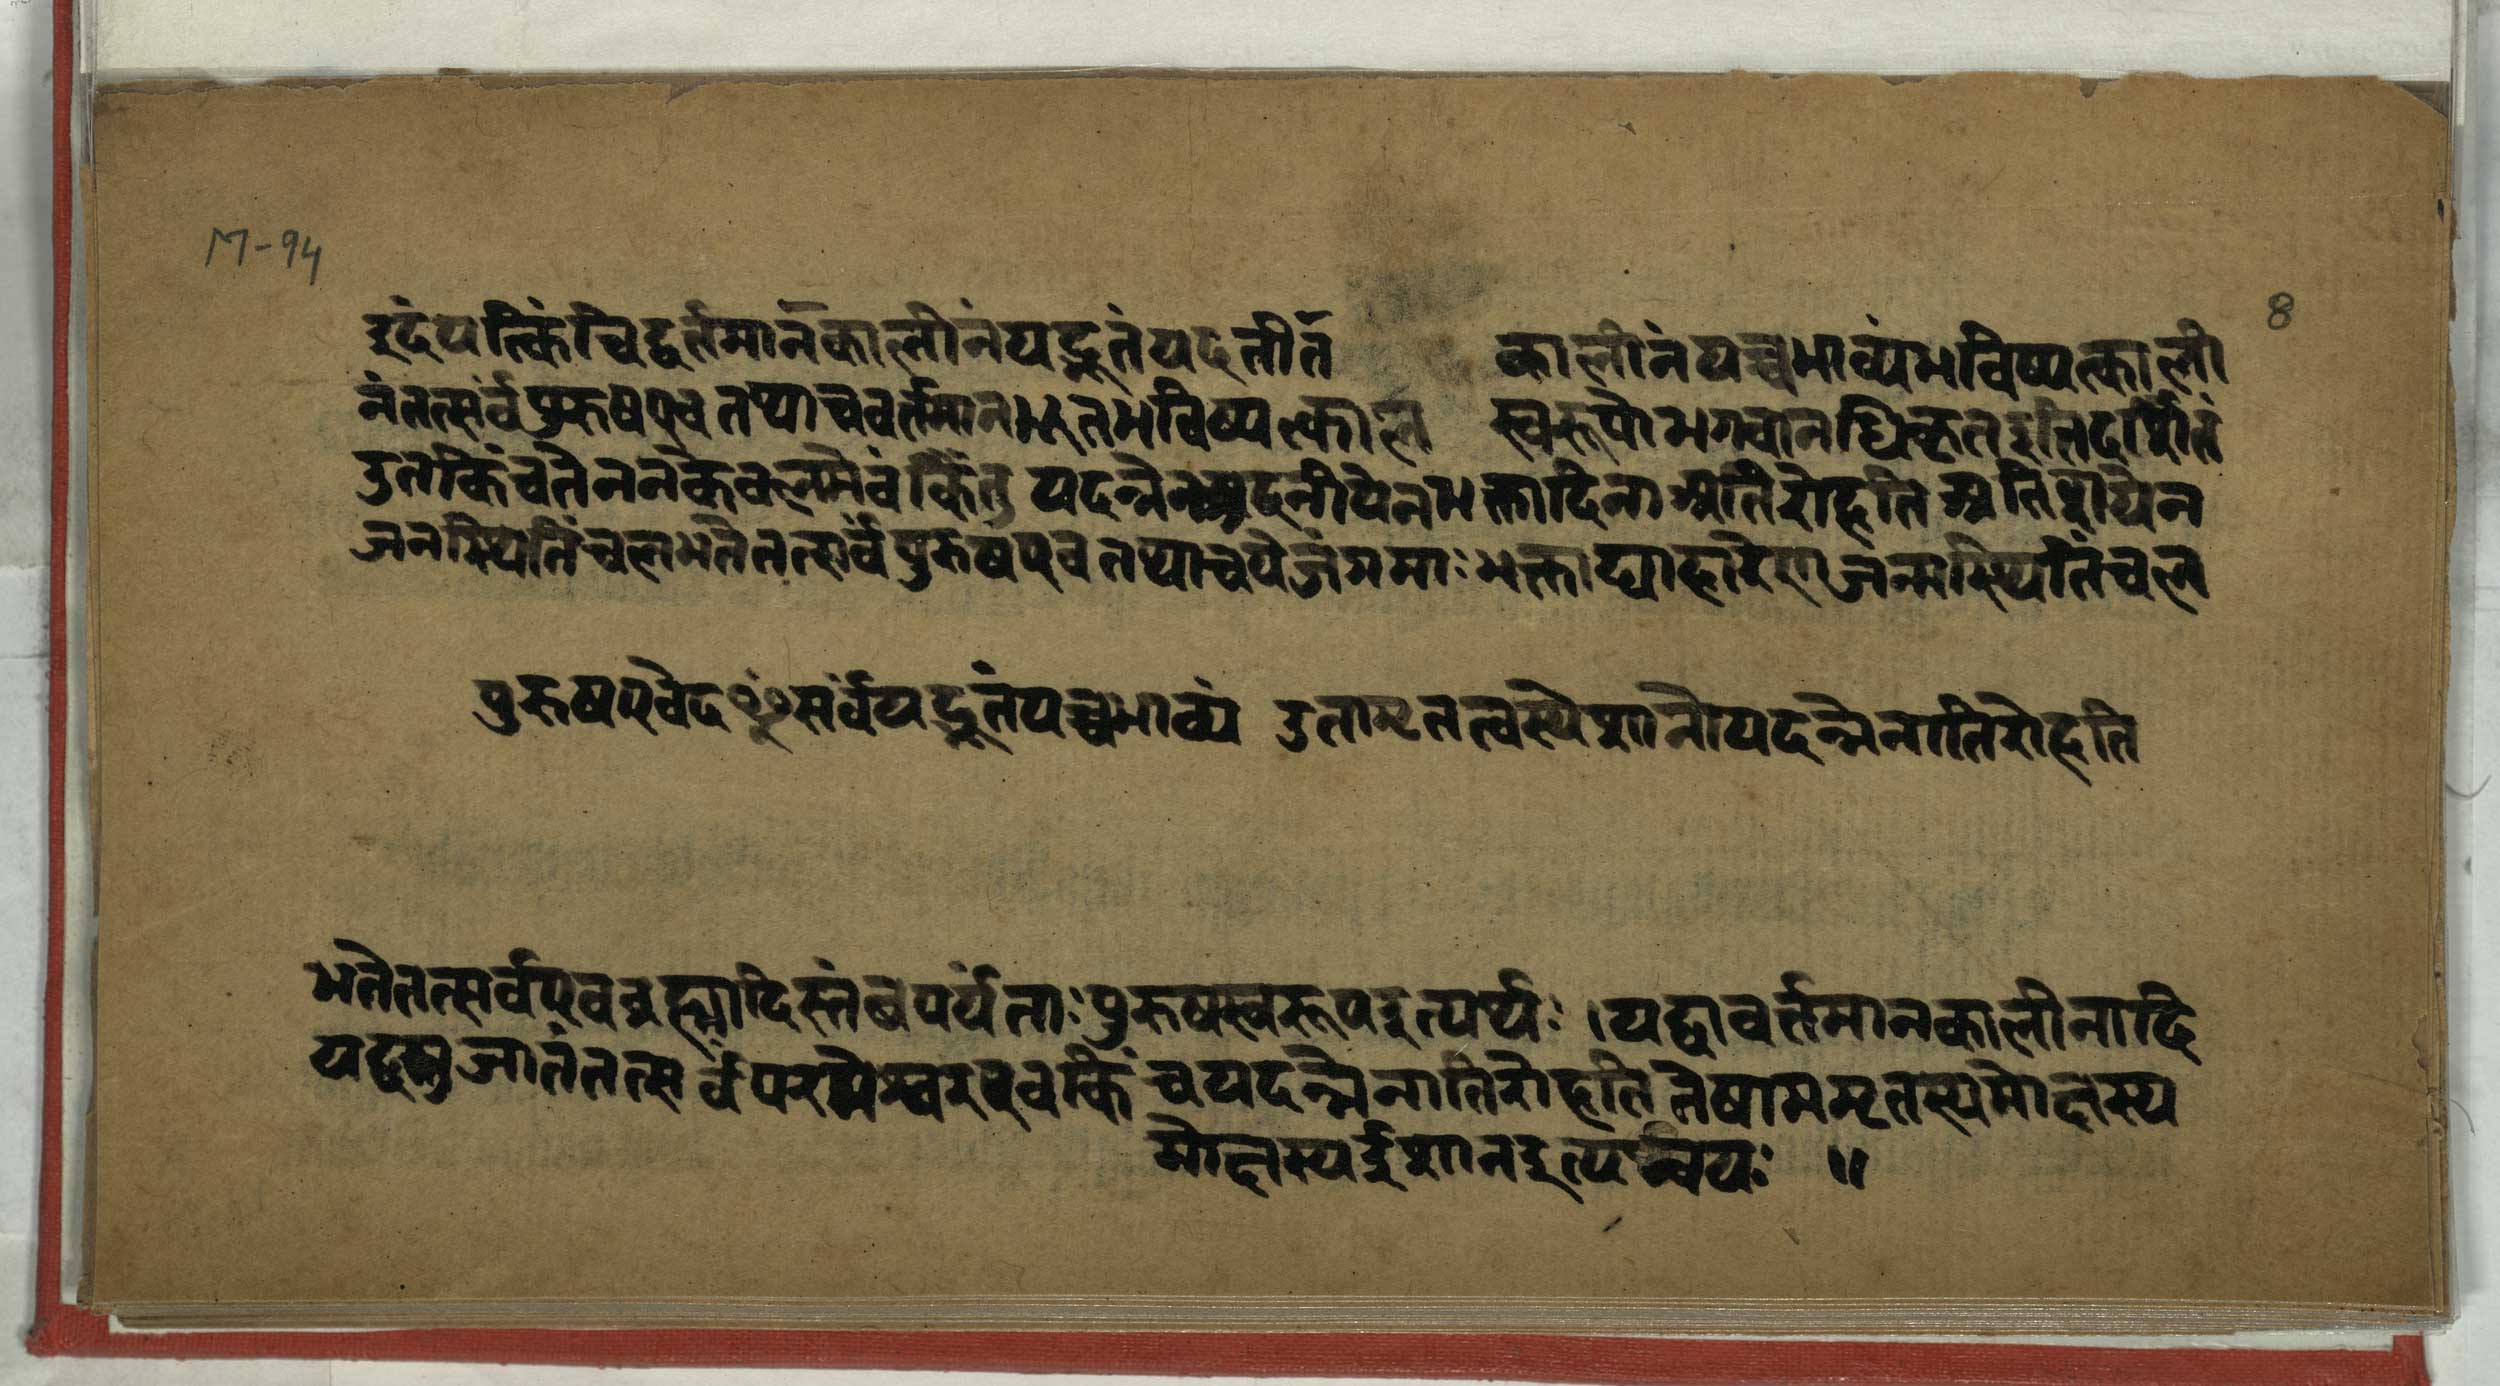 M-94
8
इदंयत्किंचिद्वर्तमानकालीनंयद्भूतंयदतीतं कालीनंयच्चभाव्यंभविष्यत्काली
नंतत्सर्वंपुरुषएवतथाचवर्तमानभूतभविष्यत्काल स्वरूपोभगवानधिकृतइतिदर्शितं
उतकिंचतेननकेवलमेवंकिंतु यदन्नेन दनीयेनभक्तादिनाअतिरोहतिअतिशयेन
जनस्थितिंचलभतेतत्सर्वंपुरुषएवतथाचयेजंगमाःभक्ताद्याहारेणजन्मस्थितिंचल
पुरुषएवेदꣳसर्वंयद्भूतंयच्चभाव्यं उतामृतत्वस्येशानोयदन्नेनातिरोहति
भतेतत्सर्वएवब्रह्मादिस्तंबपर्यंताःपुरुषस्वरूपइत्यर्थः।यद्वावर्तमानकालीनादि
यद्वस्तुजातंतत्सर्वंपरमेश्वरएवकिंचयदन्नेनातिरोहतितेषाममृतस्यमोक्षस्य
मोक्षस्यईशानइत्यन्वयः ॥